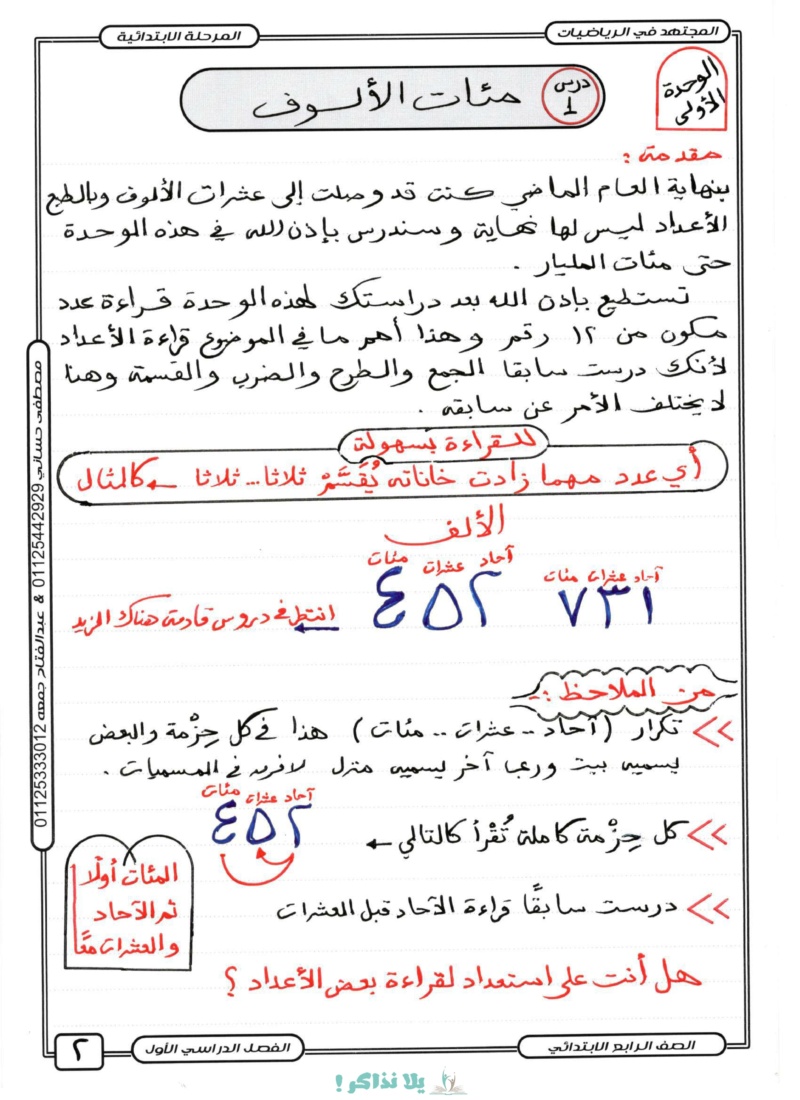 المجتهد في الرياضيات
المرحلة الابتدائية
الوحدة
الأولى
درس
1
مئات الألوف
مقدمة :
بنهاية العام الماضي كنت قد وصلت إلى عشرات الألوف وبالطبع
الأعداد ليس لها نهاية وسندرس بإذن الله في هذه الوحدة
حتى مئات المليار .
تستطيع بإذن الله بعد دراستك لهذه الوحدة قراءة عدد
مكون من ١٢ رقم وهذا أهم ما في الموضوع قراءة الأعداد
لأنك درست سابقا الجمع والطرح والضرب والقسمة وهنا
لا يختلف الأمر عن سابقه .
للقراءة بسهولة
أي عدد مهما زادت خاناته يُقَسَّمْ ثلاثا... ثلاثا ← كالمثال
الألف
آحاد عشرات مئات
آحاد عشرات مئات
٧٣١
٤٥٢
انتظر في دروس قادمة هناك المزيد
من الملاحظ :-
تكرار (آحاد .. عشرات .. مئات) هذا في كل حِزْمة والبعض
يسميه بيت وربما آخر يسميه منزل لا فرق في المسميات .
آحاد عشرات مئات
كل حِزْمة كاملة تُقْرأ كالتالي ← ٤٥٢
المئات أولًا
ثم الآحاد
والعشرات معًا
درست سابقًا قراءة الآحاد قبل العشرات
هل أنت على استعداد لقراءة بعض الأعداد ؟
مصطفى حساني 01125442929 & عبدالفتاح جمعه 01125333012
الصف الرابع الابتدائي
الفصل الدراسي الأول
٢
يلا نذاكر !